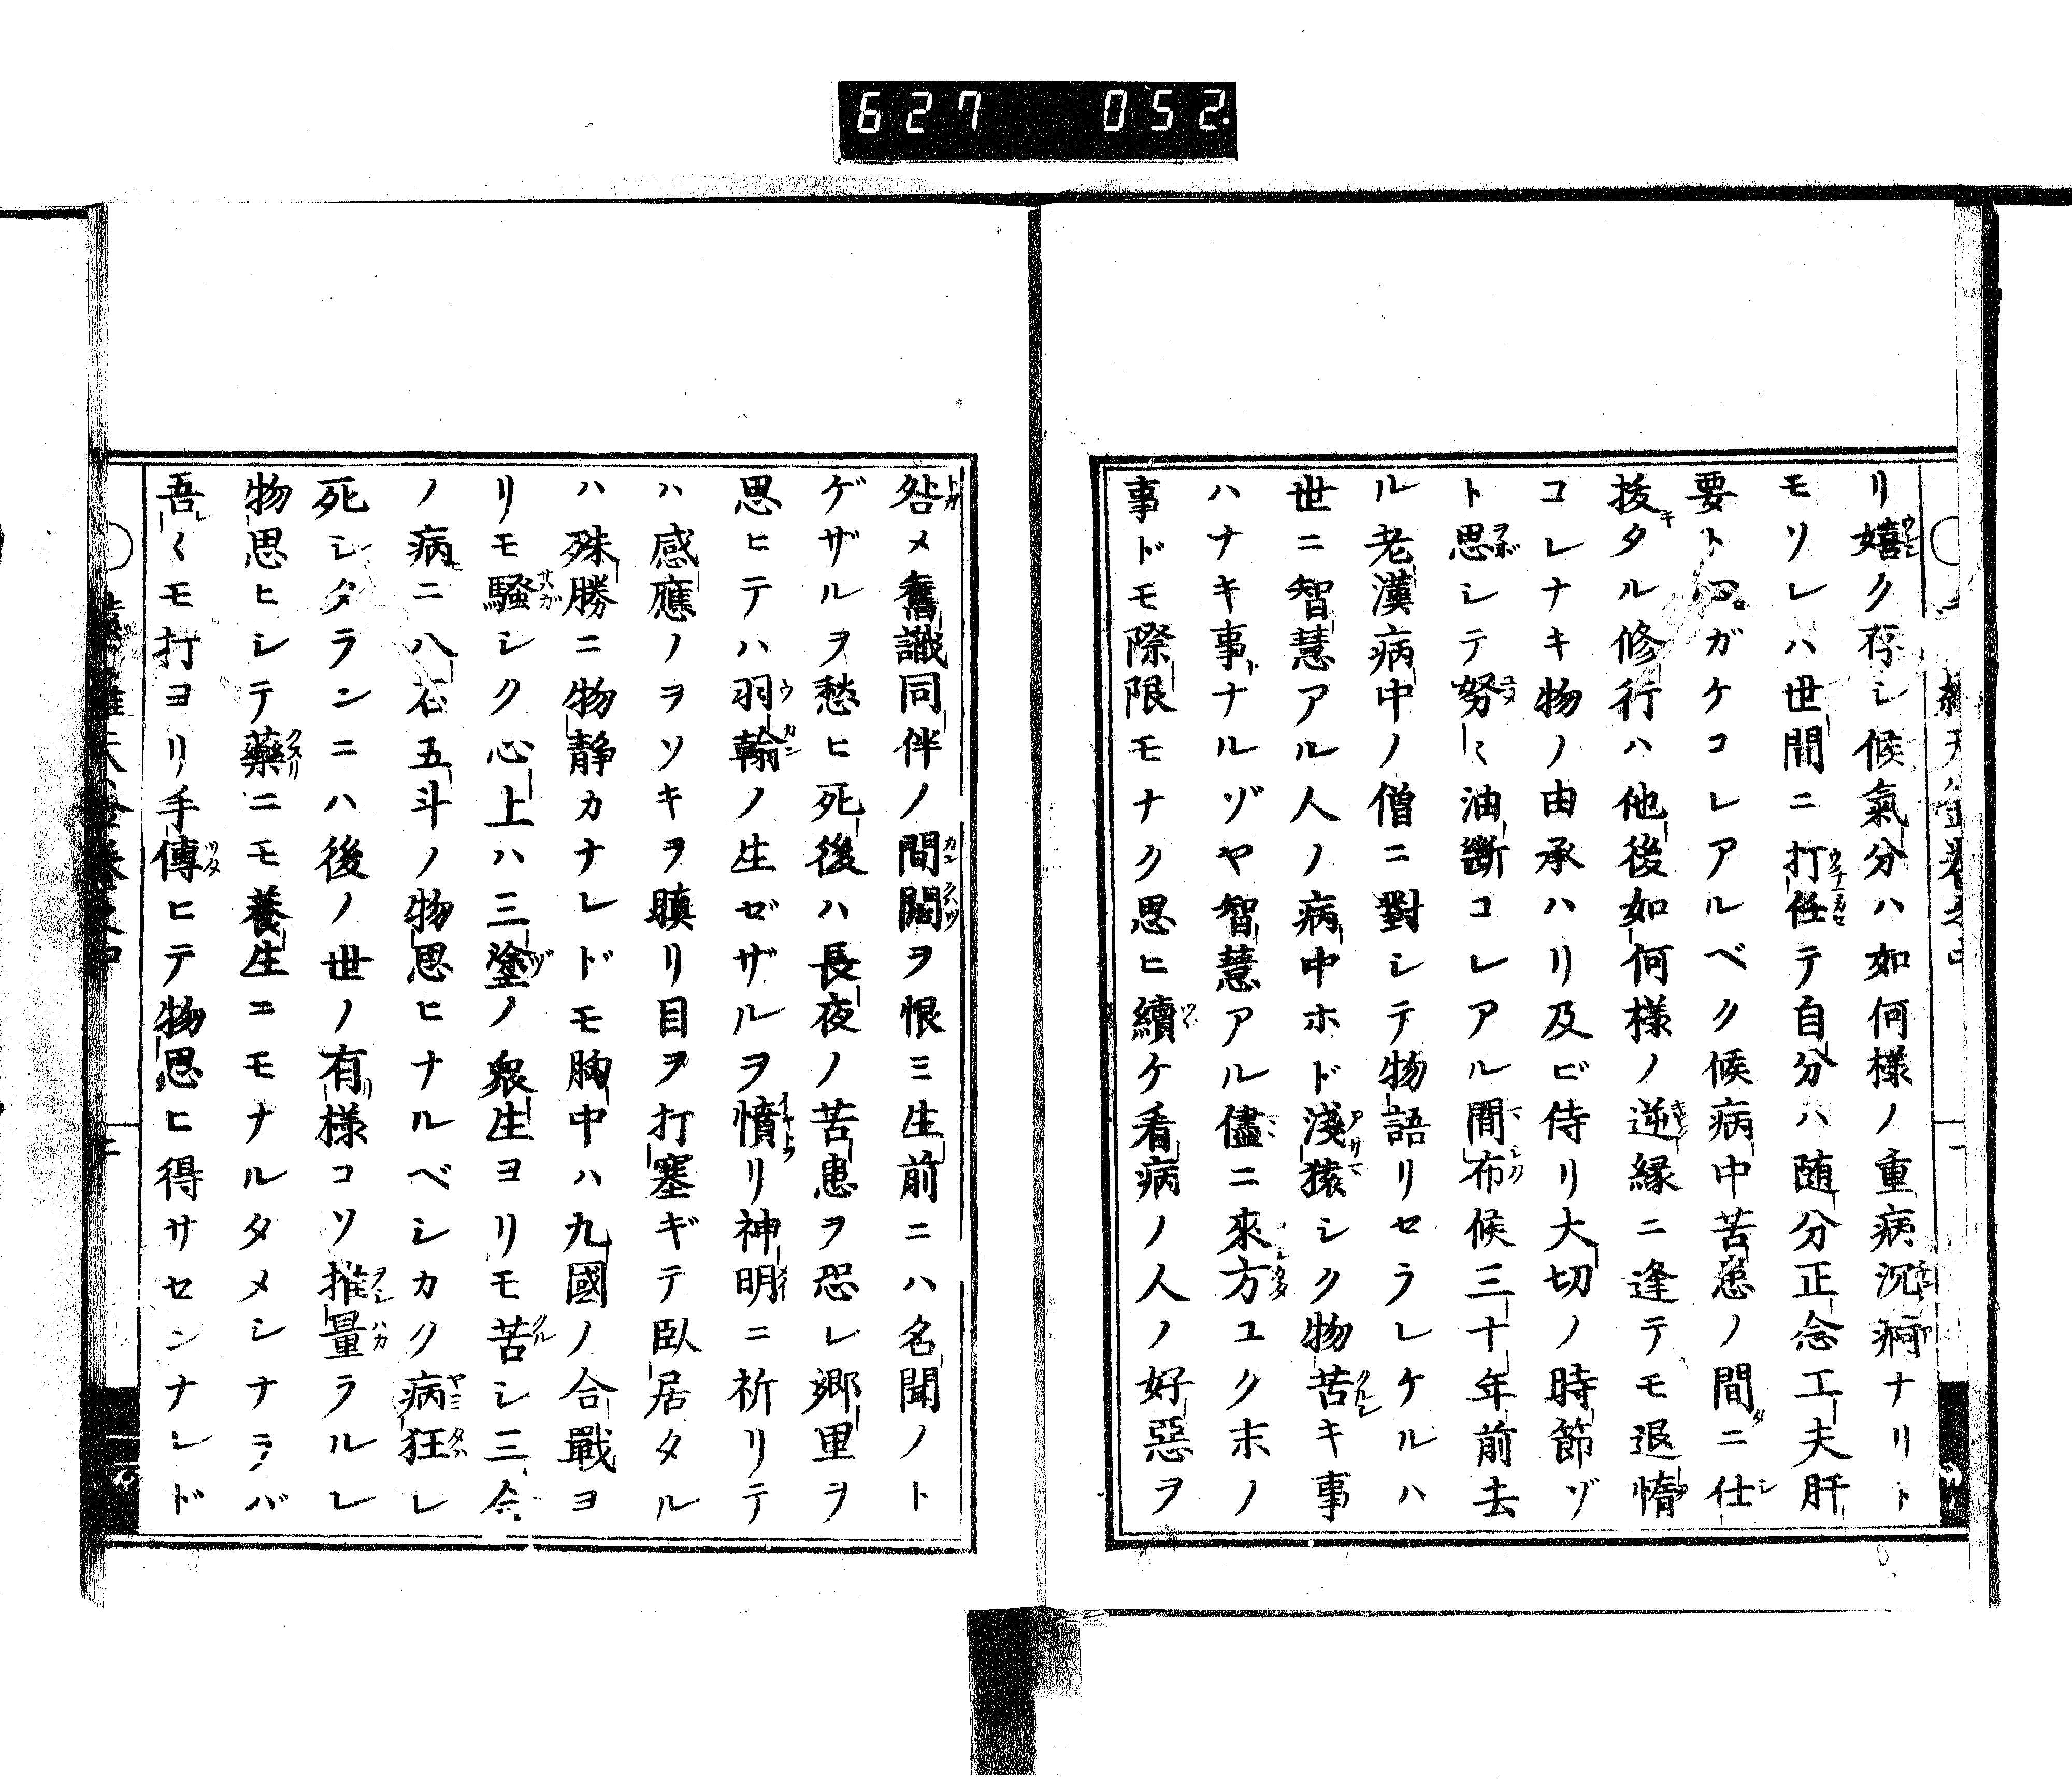 627 052.
リ嬉ク存シ候氣分ハ如何様ノ重病沉痾ナリト
モソレハ世間ニ打任テ自分ハ随分正念工夫肝
要ト心ガケコレアルベク候病中苦患ノ間ニ仕
拔タル修行ハ他後如何様ノ逆縁ニ逢テモ退惰
コレナキ物ノ由承ハリ及ビ侍リ大切ノ時節ゾ
ト思シテ努〱油斷コレアル間布候三十年前去
ル老漢病中ノ僧ニ對シテ物語リセラレケルハ
世ニ智慧アル人ノ病中ホド淺猿シク物苦キ事
ハナキ事ナルゾヤ智慧アル儘ニ來方ユク末ノ
事ドモ際限モナク思ヒ續ケ看病ノ人ノ好惡ヲ
咎メ舊識同伴ノ間闊ヲ恨ミ生前ニハ名聞ノト
ゲザルヲ愁ヒ死後ハ長夜ノ苦患ヲ恐レ郷里ヲ
思ヒテハ羽翰ノ生ゼザルヲ憤リ神明ニ祈リテ
ハ感應ノヲソキヲ瞋リ目ヲ打塞ギテ臥居タル
ハ殊勝ニ物静カナレドモ胸中ハ九國ノ合戰ヨ
リモ騷シク心上ハ三塗ノ衆生ヨリモ苦シ三合
ノ病ニ八石五斗ノ物思ヒナルベシカク病狂レ
死シタランニハ後ノ世ノ有様コソ推量ラルレ
物思ヒシテ藥ニモ養生ニモナルタメシナラバ
吾〱モ打ヨリ手傳ヒテ物思ヒ得サセンナレド